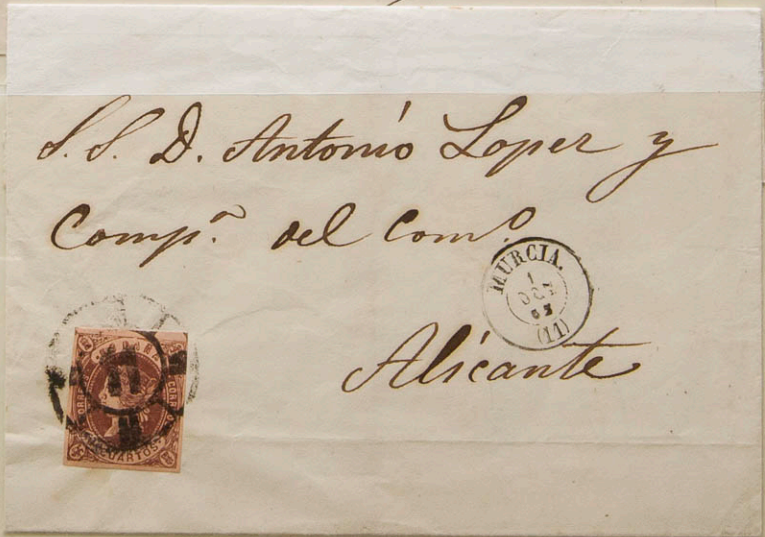 S. S. D. Antonio Lopez y
Comp.ª del Com.º
MURCIA.
1
OCT
(11)
Alicante
CORREO
CUARTOS